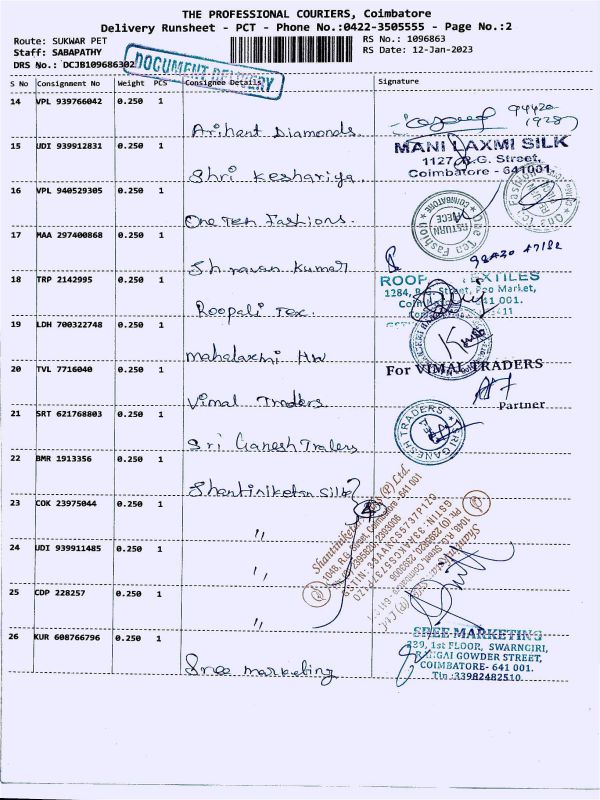 THE PROFESSIONAL COURIERS, Coimbatore
Delivery Runsheet - PCT - Phone No.:0422-3505555 - Page No.:2
Route: SUKWAR PET
RS No.: 1096863
Staff: SABAPATHY
RS Date: 12-Jan-2023
DRS No.: DCJB109686302
DOCUMENT DELIVERY
S No Consignment No Weight PCS Consignee Details Signature
14 VPL 939766042 0.250 1
Arihant Diamonds.
94420-
15 UDI 939912831 0.250 1
Shri Keshariya
MANI LAXMI SILK
1127, R.G. Street,
Coimbatore - 641001.
16 VPL 940529305 0.250 1
One Ten Fashions.
One Ten Fashion
COIMBATORE
17 MAA 297400868 0.250 1
Shravan Kumar
18 TRP 2142995 0.250 1
Roopali Tex.
ROOP TEXTILES
1284, R.G. Street, Market,
19 LDH 700322748 0.250 1
mahalaxmi HW
20 TVL 7716040 0.250 1
Vimal Traders
For VIMAL TRADERS
Partner
21 SRT 621768803 0.250 1
Sri Ganesh Traders
SRI GANESH TRADERS
22 BMR 1913356 0.250 1
Shantiniketan Silk
23 COK 23975044 0.250 1
"
Shantiniketan (P) Ltd.
1048, R.G. Street, Coimbatore - 641 001
GSTIN: 33AAKCS5737P1ZO
24 UDI 939911485 0.250 1
"
25 CDP 228257 0.250 1
"
26 KUR 608766796 0.250 1
Sree marketing
SREE MARKETING
239, 1st FLOOR, SWARNGIRI,
RANGAI GOWDER STREET,
COIMBATORE- 641 001.
Tin :33982482510